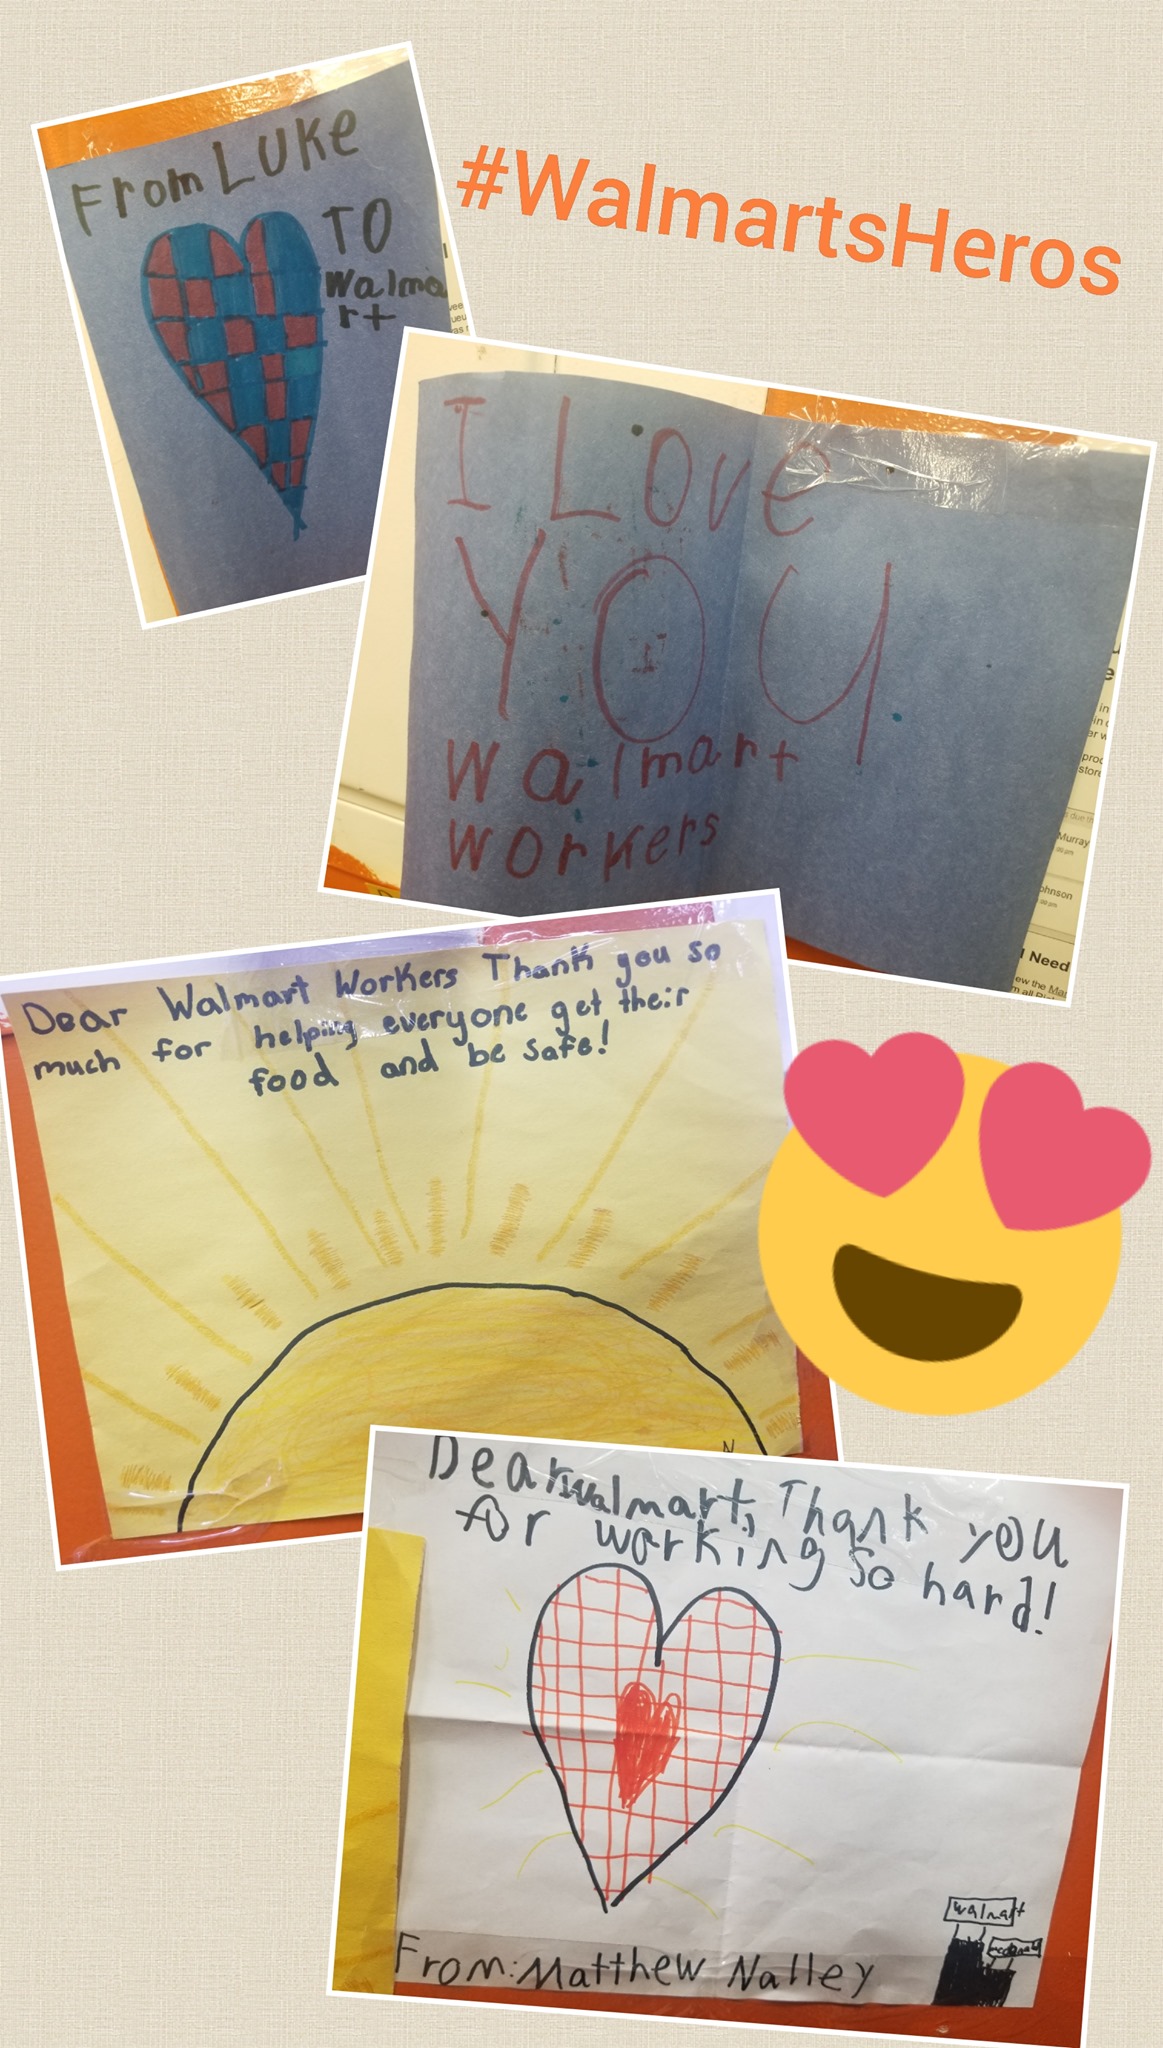 From LUKE
TO
Walma
rt
#WalmartsHeros
I Love
YOU
Walmart
Workers
Dear Walmart Workers Thank you so
much for helping everyone get their
food and be safe!
Dear Walmart, Thank you
for working so hard!
Walmart
From: Matthew Nalley
Murray
ohnson
I Need
ew the